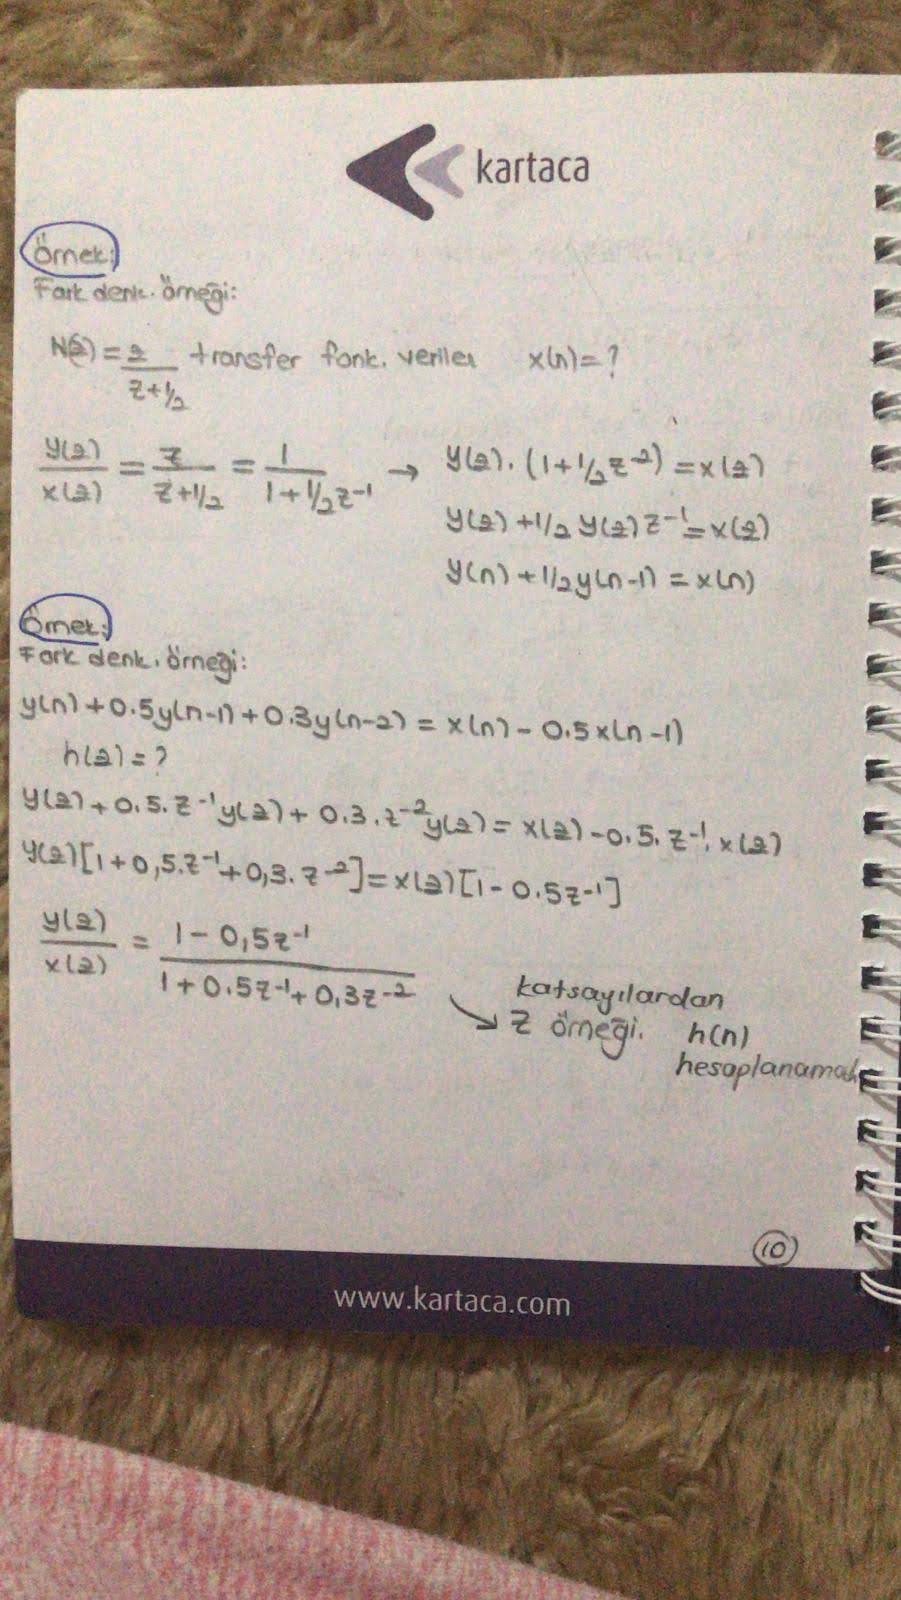 kartaca
Örnek:
Fark denk. örneği:
H(z) = z / (z+1/2) transfer fonk. veriler x(n)=?
y(z)/x(z) = z/(z+1/2) = 1/(1+1/2z⁻¹) → y(z).(1+1/2z⁻²)=x(z)
y(z)+1/2 y(z)z⁻¹=x(z)
y(n)+1/2y(n-1)=x(n)
Örnek:
Fark denk. örneği:
y(n)+0.5y(n-1)+0.3y(n-2)=x(n)-0.5x(n-1)
h(z)=?
y(z)+0.5.z⁻¹y(z)+0.3.z⁻²y(z)=x(z)-0.5.z⁻¹.x(z)
y(z)[1+0,5.z⁻¹+0,3.z⁻²]=x(z)[1-0.5z⁻¹]
y(z)/x(z) = (1-0,5z⁻¹)/(1+0.5z⁻¹+0,3z⁻²)
katsayılardan
z örneği. h(n)
10
www.kartaca.com